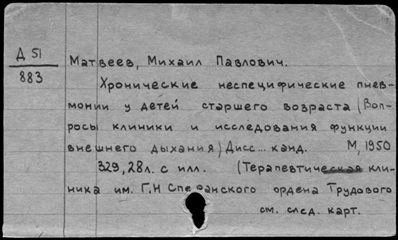 Д 51
883
Матвеев, Михаил Павлович.
Хронические неспецифические пнев-
монии у детей старшего возраста (Воп-
росы клиники и исследования функции
внешнего дыхания) Дисс... канд. М, 1950
329, 28л. с илл. (Терапевтическая кли-
ника им. Г.Н Сперанского ордена Трудового
см. след. карт.